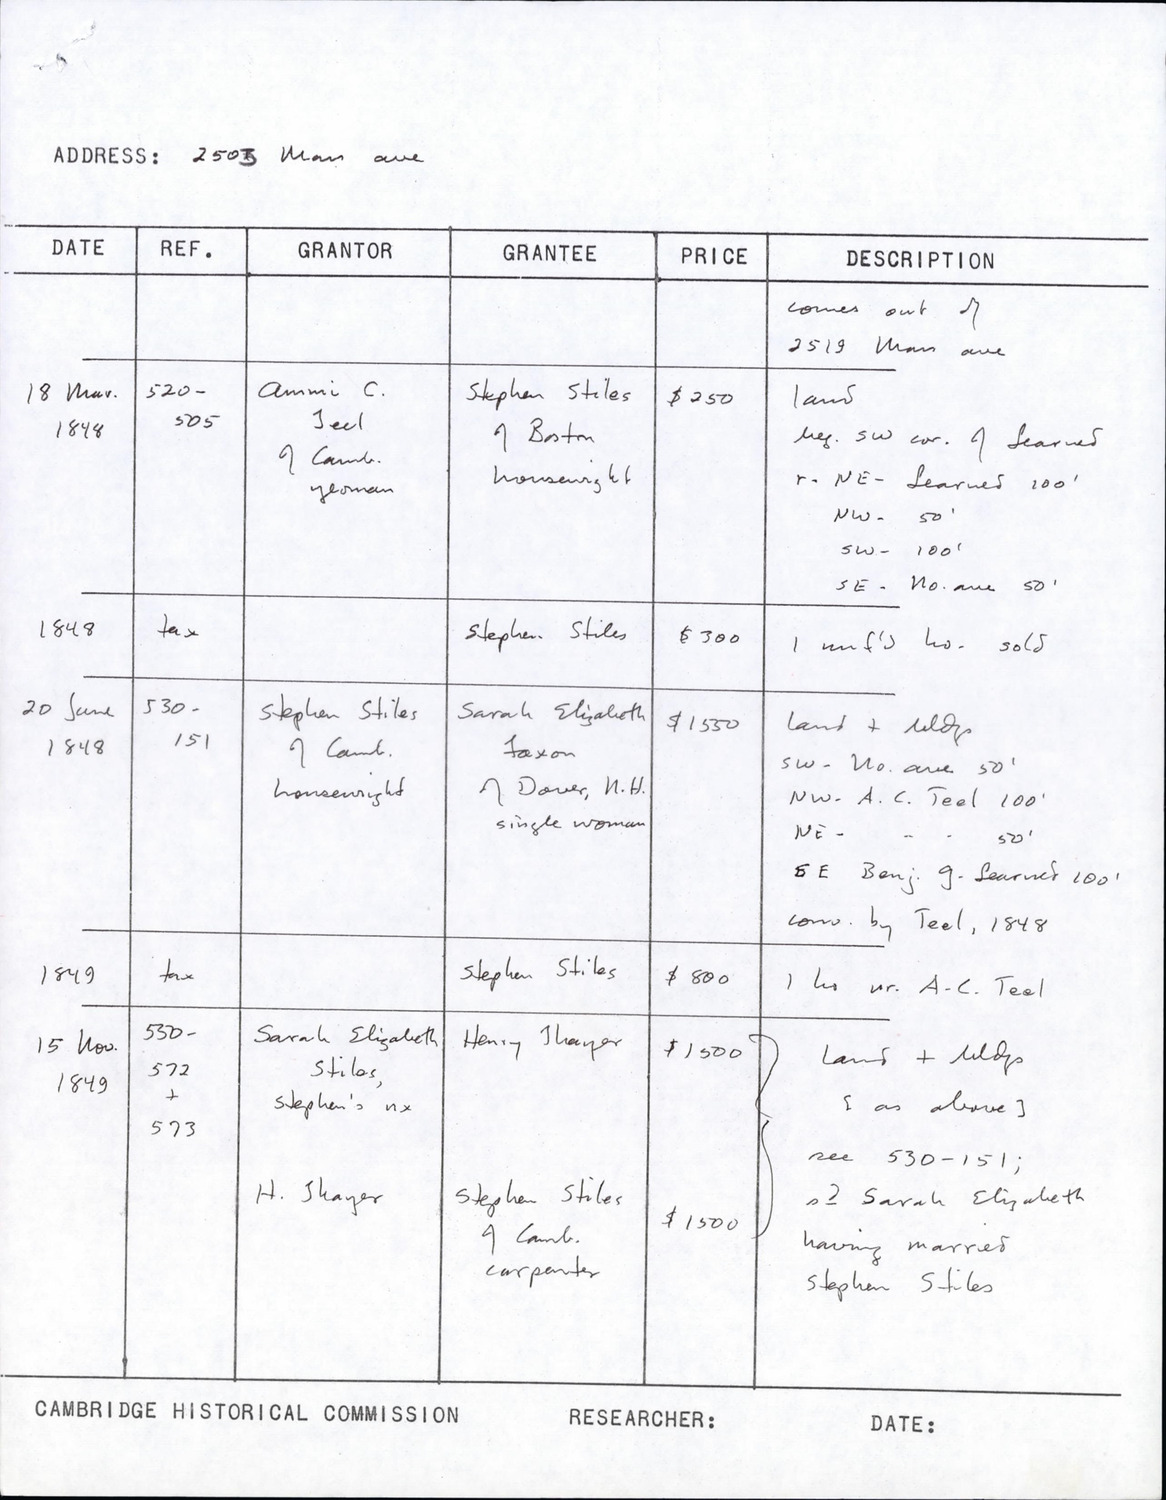 ADDRESS: 2503 Mass ave
DATE REF. GRANTOR GRANTEE PRICE DESCRIPTION
comes out of
2519 Mass ave
18 Mar. 1848
520-505
Ammi C.
Teel
of Camb.
yeoman
Stephen Stiles
of Boston
housewright
$250
land
beg. SW cor. of Learned
r. NE- Learned 100'
NW- 50'
SW- 100'
SE- No. ave 50'
1848 tax Stephen Stiles $300 1 unf'd ho. sold
20 June
1848
530-
151
Stephen Stiles
of Camb.
housewright
Sarah Elizabeth
Faxon
of Dover, N.H.
single woman
$1550
land + bldgs
SW- No. ave 50'
NW- A. C. Teel 100'
NE- " " 50'
SE Benj. G. Learned 100'
conv. by Teel, 1848
1849 tax Stephen Stiles $800 1 ho nr. A.C. Teel
15 Nov.
1849
530-
572
+
573
Sarah Elizabeth
Stiles,
Stephen's ux
Henry Thayer
$1500
H. Thayer
Stephen Stiles
of Camb.
carpenter
$1500
land + bldgs
[as above]
see 530-151;
sd Sarah Elizabeth
having married
Stephen Stiles
CAMBRIDGE HISTORICAL COMMISSION RESEARCHER: DATE: